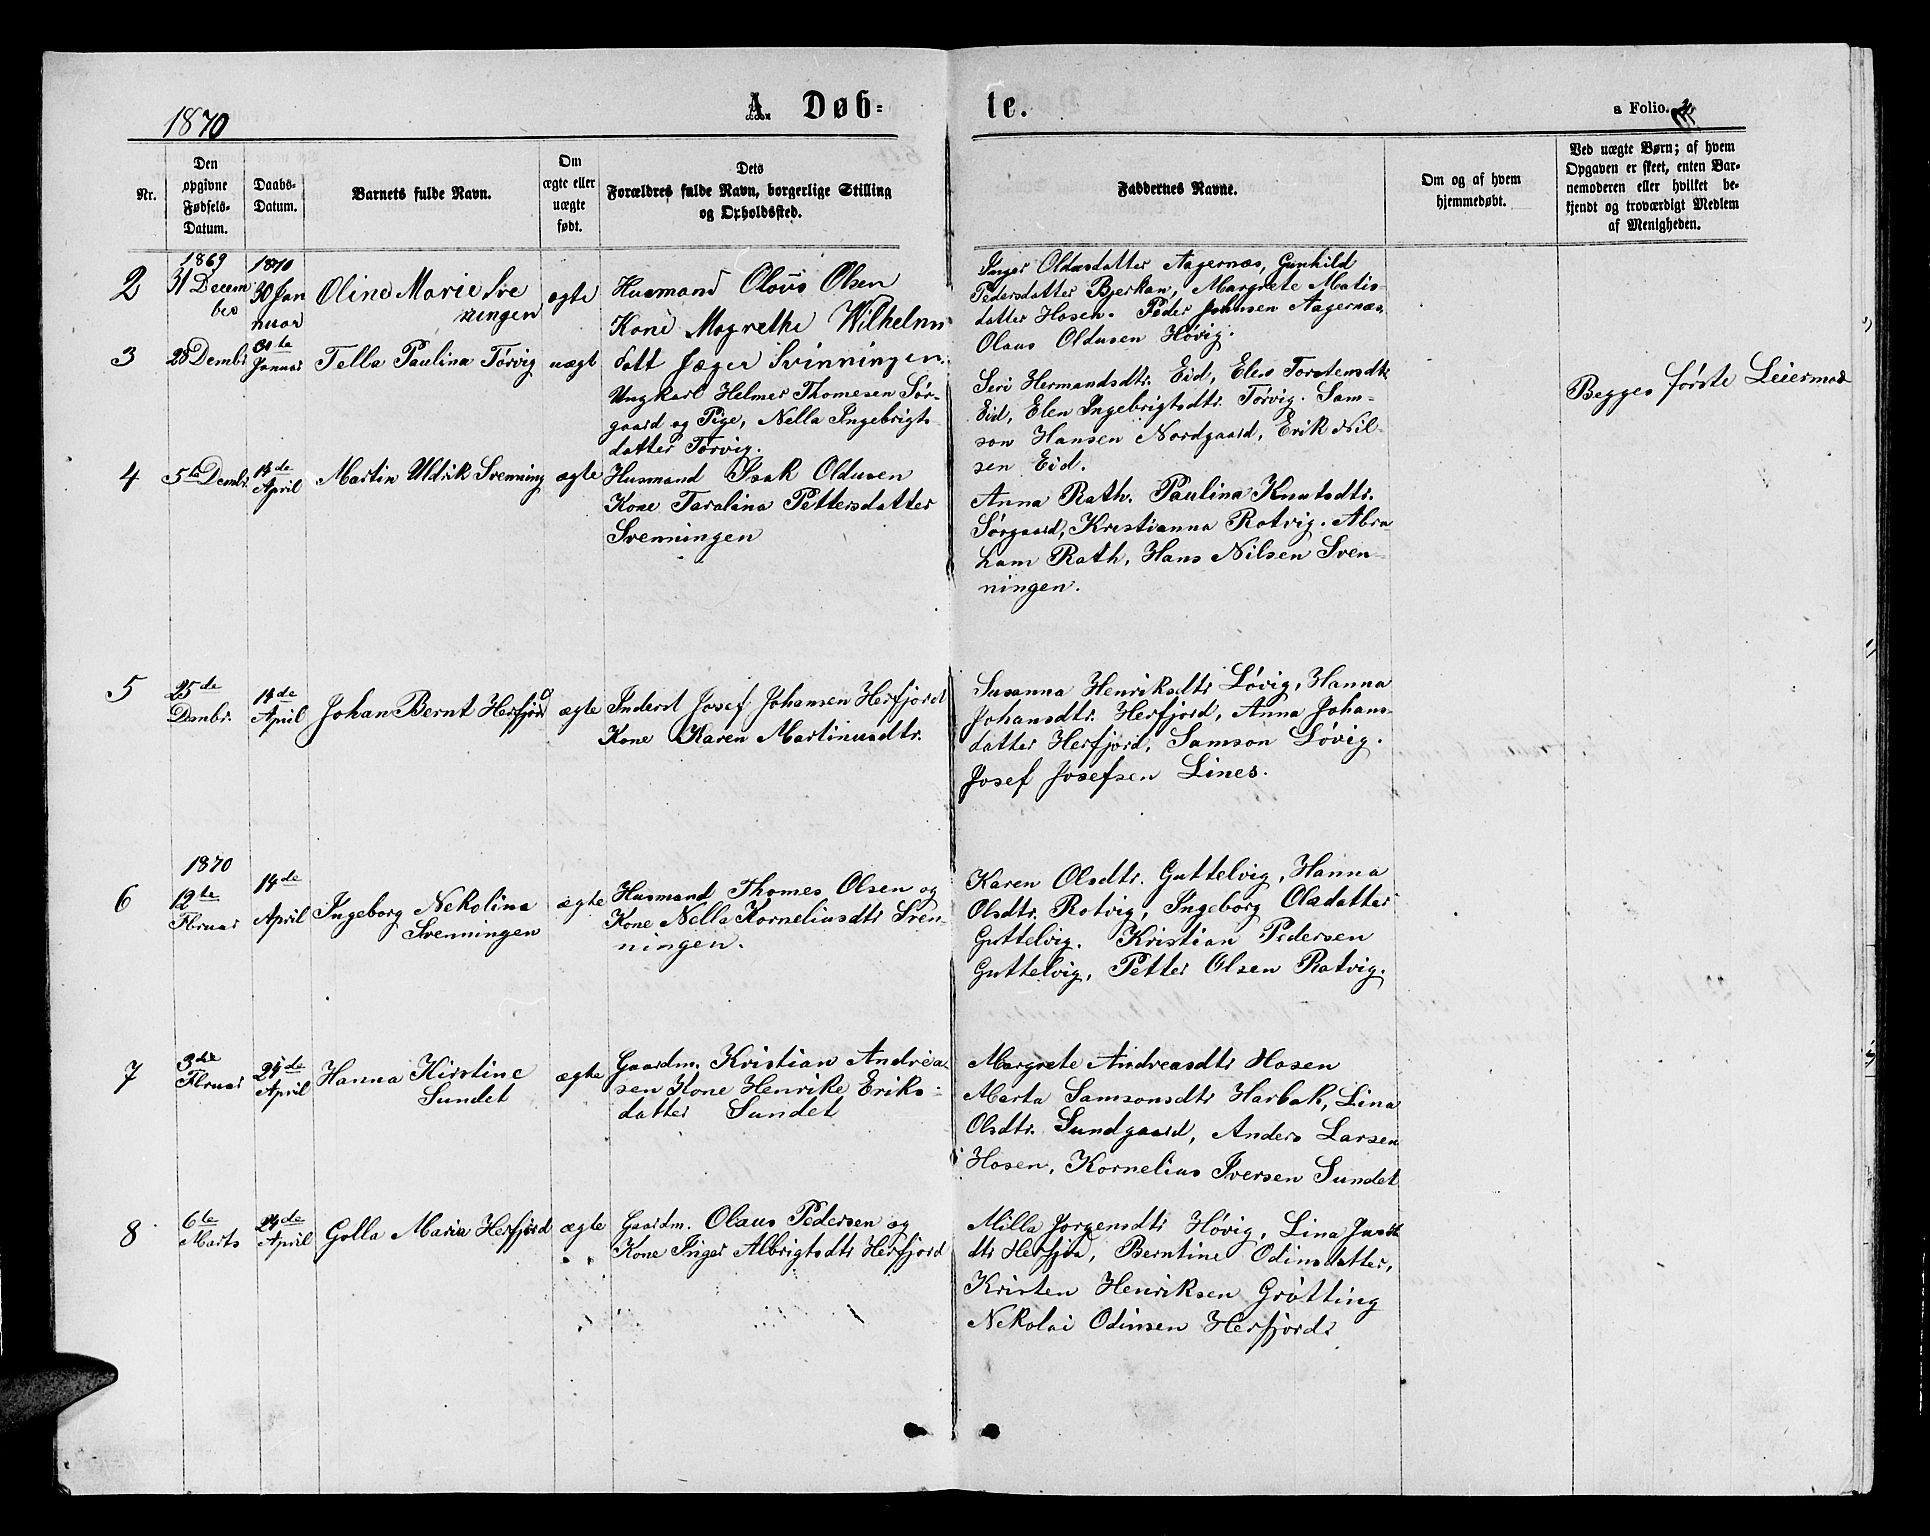 1870
A Døb-
te.
a Folio.
Nr.
Den
opgivne
Fødsels-
Datum.
Daabs-
Datum.
Barnets fulde Navn.
Om
ægte eller
uægte
født.
Dets
Forældres fulde Navn, borgerlige Stilling
og Opholdssted.
Faddernes Navne.
Om og af hvem
hjemmedøbt.
Ved uægte Børn; af hvem
Opgaven er skeet, enten Bar-
nemoderen eller hvilket be-
kjendt og troværdigt Medlem
af Menigheden.
2
1869
31 Decem
ber
1870
30 Jan
nuar
Oline Marie Sve
ningen
ægte
Husmand Olaus Olsen
Kone Magrethe Wilhelms
datt Jæger Svinningen.
Inger Oldusdatter Aagernæs, Gunhild
Pedersdatter Bjerkan, Margrete Matis-
datter Hosen. Peder Johnsen Aagernæs,
Olaus Oldusen Høvig.
3
28 Dembr.
30te
Januar
Tella Paulina Torvig
uægt
Ungkarl Helmer Thomesen Sør-
gaard og Pige, Nella Ingebrigts-
datter Torvig.
Seri Hermandsdtr. Eid, Elen Torstensdtr
Eid, Elen Ingebrigtsdtr. Torvig. Sam-
son Hansen Nordgaard, Erik Nil-
sen Eid.
Begges første Leiermaal
4
5te Dembr.
14de
April
Martin Uldrik Svenning
ægte
Husmand Isak Oldusen
Kone Taralina Pettersdatter
Svenningen
Anna Rath. Paulina Knutsdtr.
Sørgaard, Kristianna Rotvig. Abra
ham Rath, Hans Nilsen Sven-
ningen.
5
25de
Dembr.
14de
April
Johan Bernt Herfjord
ægte
Inderst Josef Johansen Herfjord
Kone Karen Martinusdtr.
Susanna Henriksdtr Løvig, Hanna
Johansdtr. Herfjord, Anna Johans-
datter Herfjord, Samson Løvig.
Josef Josefsen Lines.
6
1870
12te
Fbruar
14de
April
Ingeborg Nekolina
Svenningen
ægte
Husmand Thomes Olsen og
Kone Nella Korneliusdtr Sven-
ningen.
Karen Olsdtr. Guttelvig, Hanna
Olsdtr. Rotvig, Ingeborg Olsdatter
Guttelvig. Kristian Pedersen
Guttelvig, Petter Olsen Ratvig.
7
3die
Fbruar
24de
April
Hanna Kirstine
Sundet
ægte
Gaardm. Kristian Andrea-
sen Kone Henrike Eriks-
datter Sundet
Margrete Andreasdtr Hosen
Marta Samsonsdtr Harbak, Lina
Olsdtr. Sundgaard, Anders Larsen
Hosen, Kornelius Iversen Sundet
8
6te
Marts
24de
April
Golla Maria Herfjord
ægte
Gaardm. Olaus Pedersen og
Kone Inger Albrigtsdtr Herfjord
Milla Jørgensdtr Høvig, Lina
dtr Herfjord, Berntine Odinsdatter,
Kristen Henriksen Grøtting
Nekolai Odinsen Herfjord.